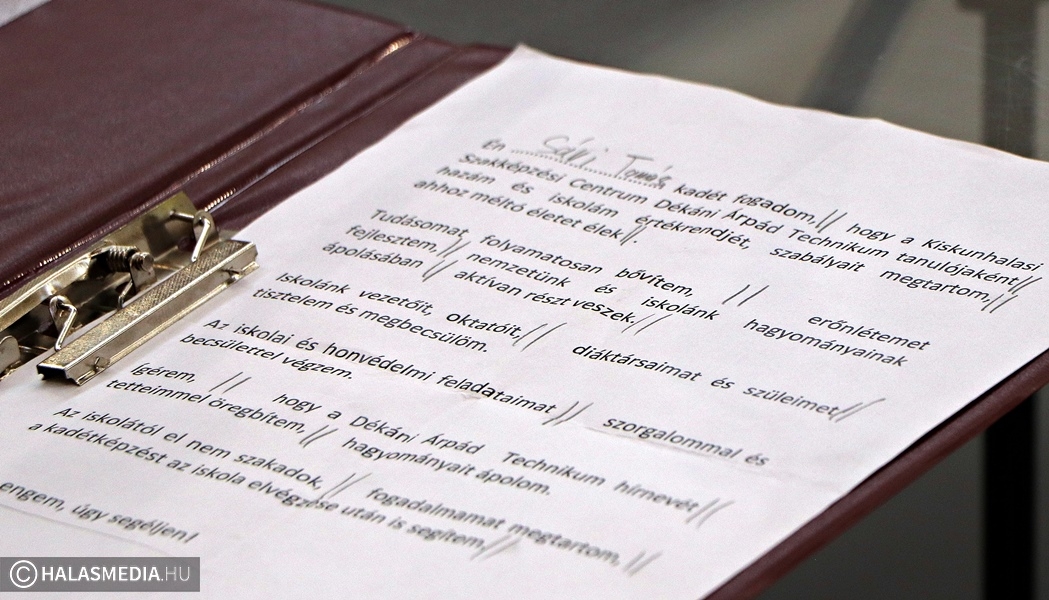 Én ........ Tamás kadét fogadom, // hogy a Kiskunhalasi
Szakképzési Centrum Dékáni Árpád Technikum tanulójaként //
hazám és iskolám értékrendjét, szabályait megtartom, //
ahhoz méltó életet élek //.
Tudásomat folyamatosan bővítem, // erőnlétemet
fejlesztem, // nemzetünk és iskolánk hagyományainak
ápolásában // aktívan részt veszek. //
Iskolánk vezetőit, oktatóit, // diáktársaimat és szüleimet //
tisztelem és megbecsülöm.
Az iskolai és honvédelmi feladataimat // szorgalommal és
becsülettel végzem.
Ígérem, // hogy a Dékáni Árpád Technikum hírnevét //
tetteimmel öregbítem, // hagyományait ápolom.
Az iskolától el nem szakadok, // fogadalmamat megtartom, //
a kadétképzést az iskola elvégzése után is segítem. //
engem, úgy segéljen!
© HALASMEDIA.HU